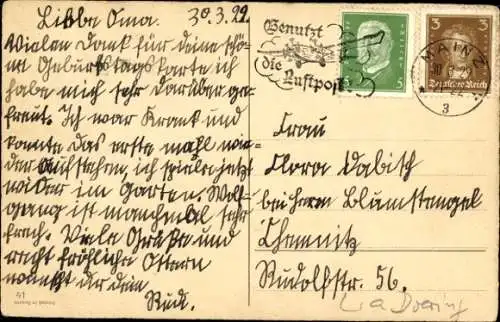 Liebe Oma. 30.3.29.
Vielen Dank für deine schö-
ne Geburtstagskarte ich
habe mich sehr darüber ge-
freut. Ich war Krank und
konnte das erste mahl wie-
der Aufstehen, ich spiele jetzt
wieder im Garten. Wolf-
gang ist manchmal sehr
frech. Viele Grüße und
recht fröhliche Ostern
wünscht dir dein
Rudi.
41
Benutzt
die
Luftpost
5
3 3
Deutsches Reich
MAINZ
3
Frau
Clara Dabisch
bei Herrn Blumstengel
Chemnitz
Rudolfstr. 56.